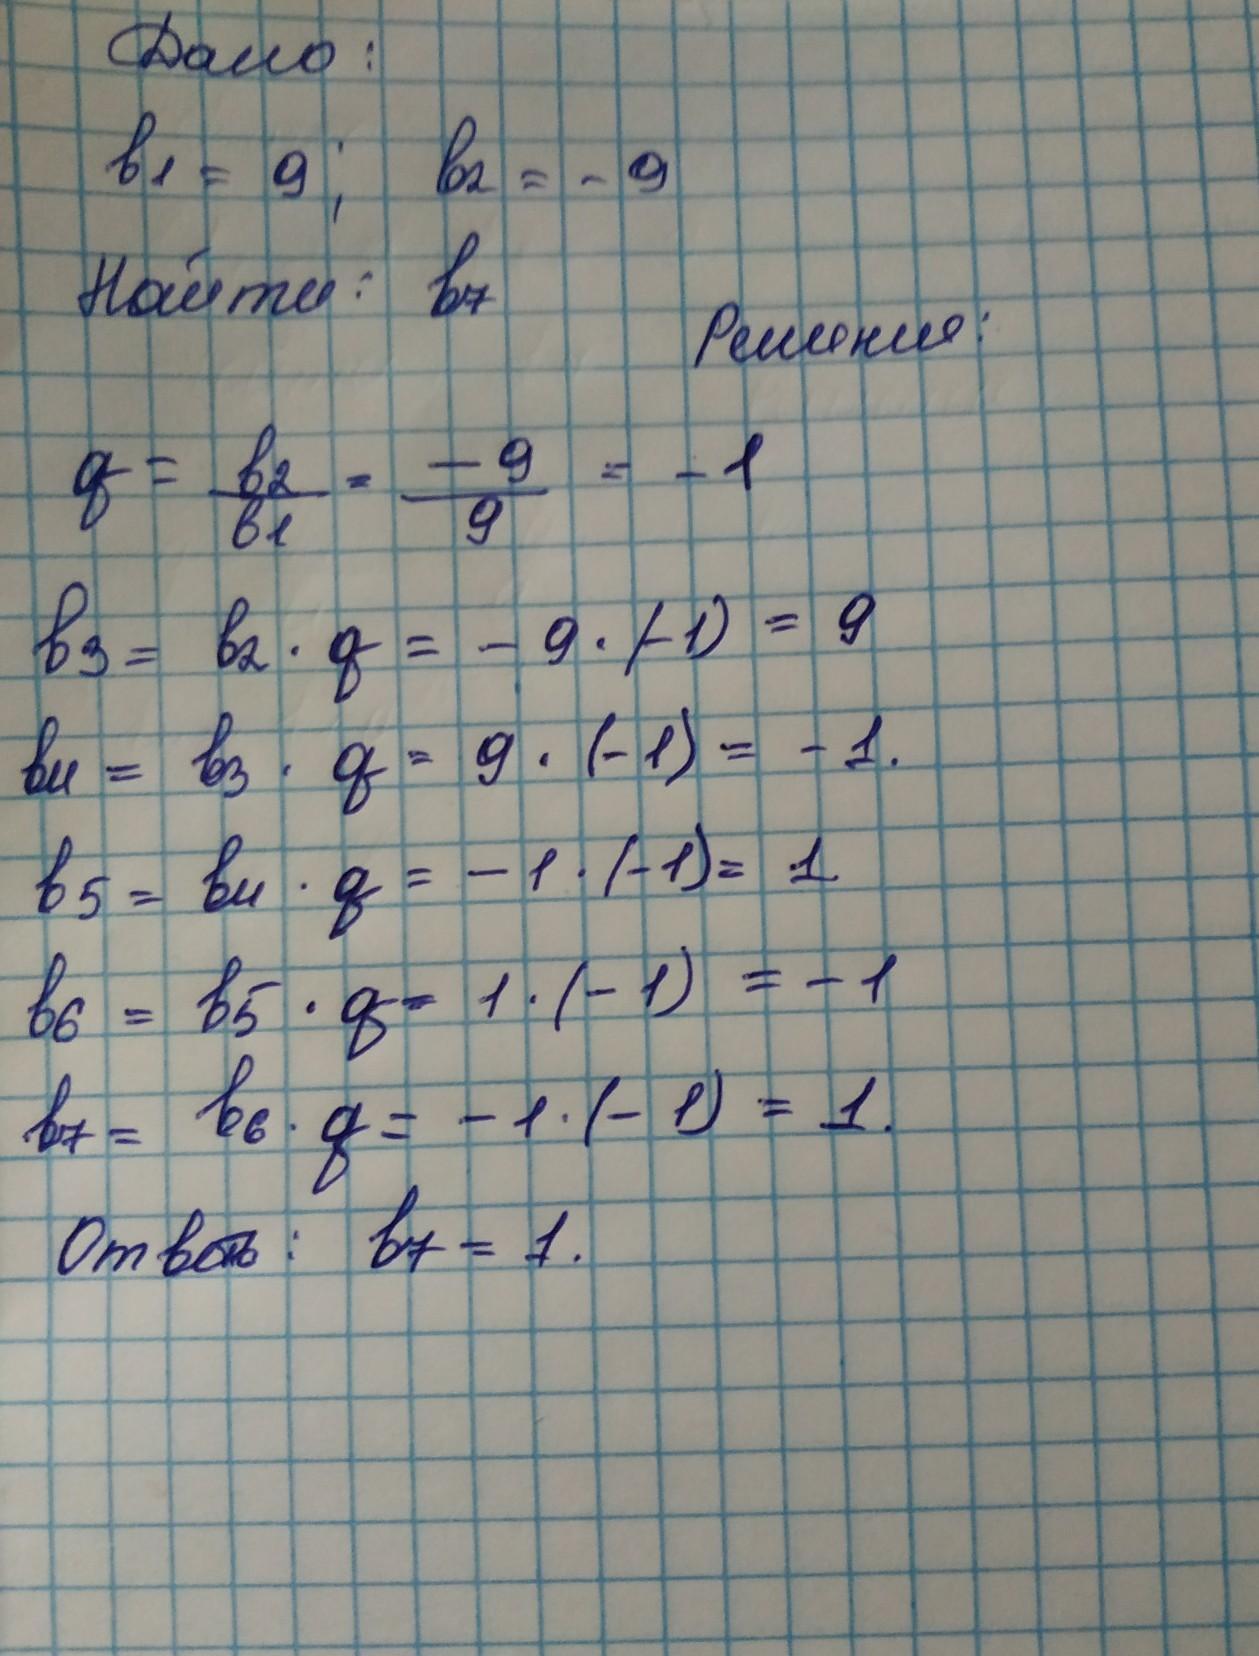 Дано:
b1 = 9; b2 = - 9
Найти: b7
Решения:
q = b2/b1 = -9/9 = - 1
b3 = b2 · q = - 9 · (-1) = 9
b4 = b3 · q = 9 · (-1) = - 1.
b5 = b4 · q = - 1 · (-1) = 1
b6 = b5 · q = 1 · (-1) = - 1
b7 = b6 · q = - 1 · (- 1) = 1.
Ответь: b7 = 1.